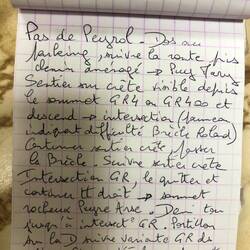 Pas de Peyrol - Dos au
parking, suivre la route puis
chemin aménagé → Puy Mary
Sentier sur crête visible depuis
le sommet GR4 ou GR400 et
descend → intersection (panneau
indiquant difficulté Brèche Roland)
Continuer sentier crête, passer
la Brèche. Suivre sentier crête
Intersection GR, le quitter et
continuer tt droit → sommet
rocheux Peyre Arse. Demi tour
jusqu'à intersect° GR. Portillon
sur la D suivre variante GR de